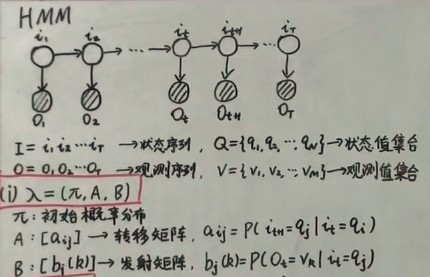 HMM
i₁ i₂ ... iₜ iₜ₊₁ ... i_T
O₁ O₂ Oₜ Oₜ₊₁ O_T
I = i₁ i₂ ... i_T → 状态序列, Q = {q₁, q₂, ..., q_N} → 状态值集合
O = O₁ O₂ ... O_T → 观测序列, V = {v₁, v₂, ..., v_M} → 观测值集合
(i) λ = (π, A, B)
π: 初始概率分布
A: [aᵢⱼ] → 转移矩阵, aᵢⱼ = P(iₜ₊₁ = qⱼ | iₜ = qᵢ)
B: [bⱼ(k)] → 发射矩阵, bⱼ(k) = P(Oₜ = vₖ | iₜ = qⱼ)